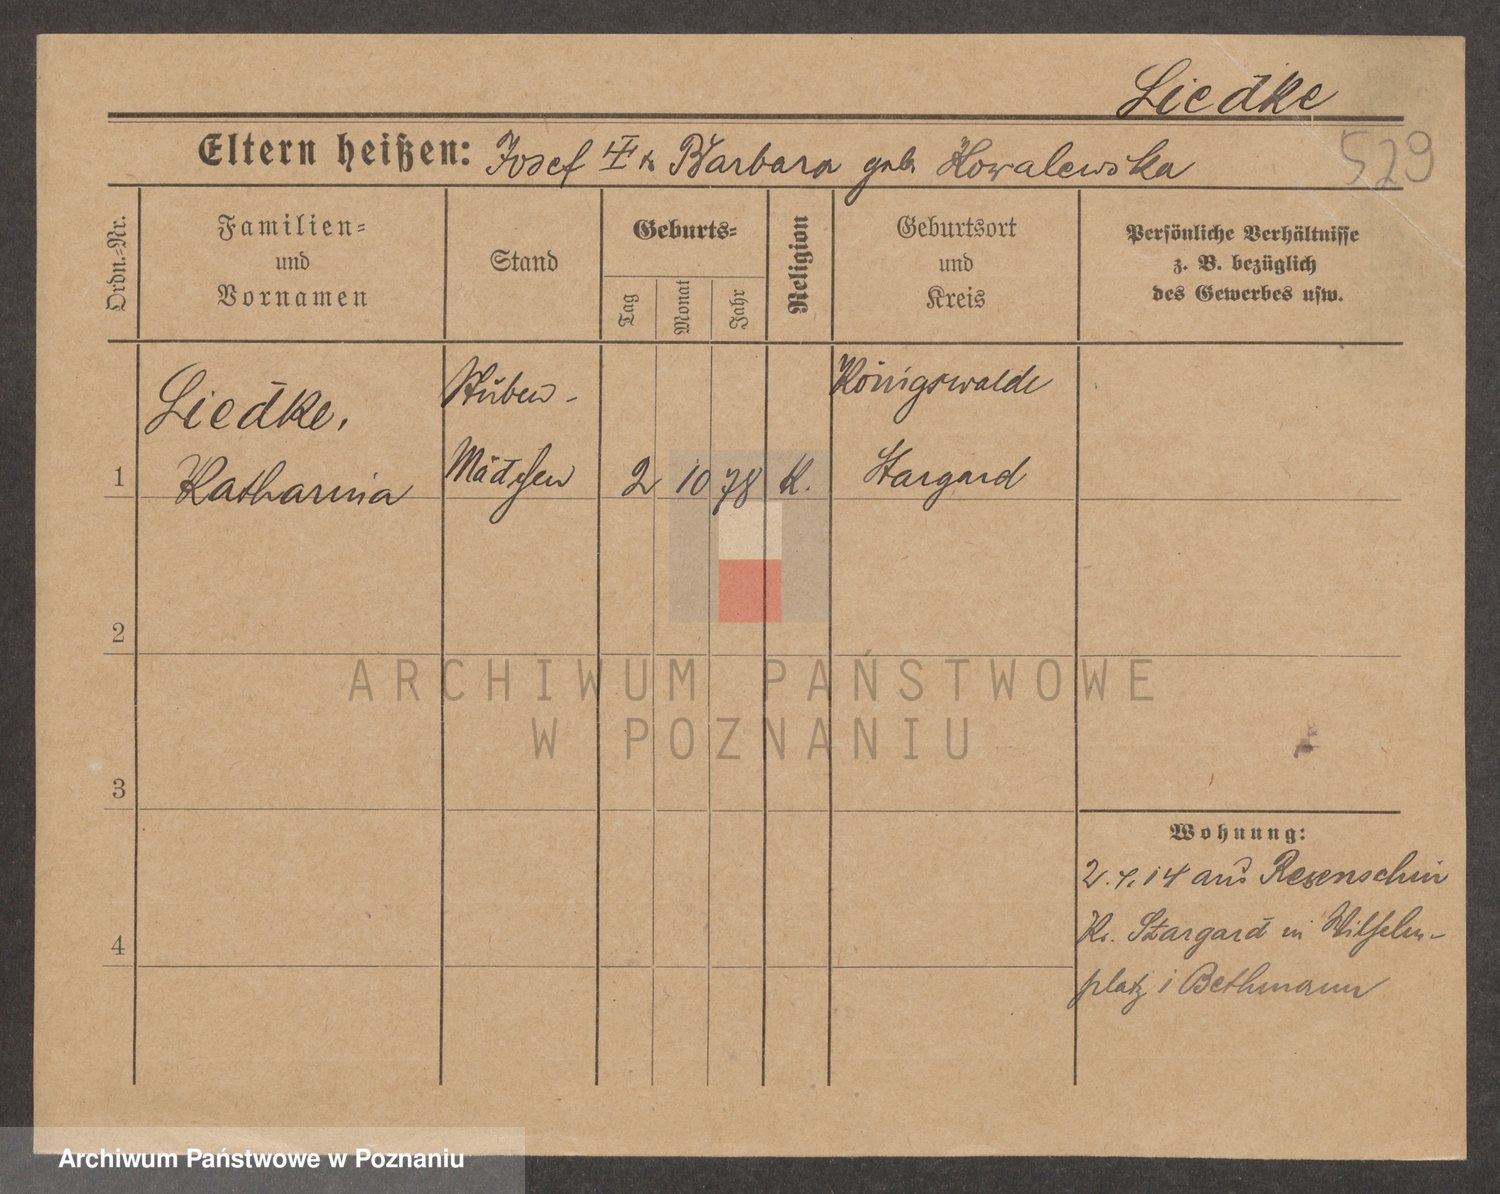 Liedke
529
Eltern heißen: Josef u. Barbara geb. Kowalewska
Ordn.=Nr.
Familien=
und
Vornamen
Stand
Geburts=
Tag
Monat
Jahr
Religion
Geburtsort
und
Kreis
Persönliche Verhältnisse
z. B. bezüglich
des Gewerbes usw.
1
Liedke,
Katharina
Stuben-
Mädchen
2
10
78
K.
Königswalde
Stargard
2
3
4
Wohnung:
2.4.14 aus Resenschin
Kr. Stargard in Wilhelm-
platz 1 Bethmann
ARCHIWUM PAŃSTWOWE
W POZNANIU
Archiwum Państwowe w Poznaniu